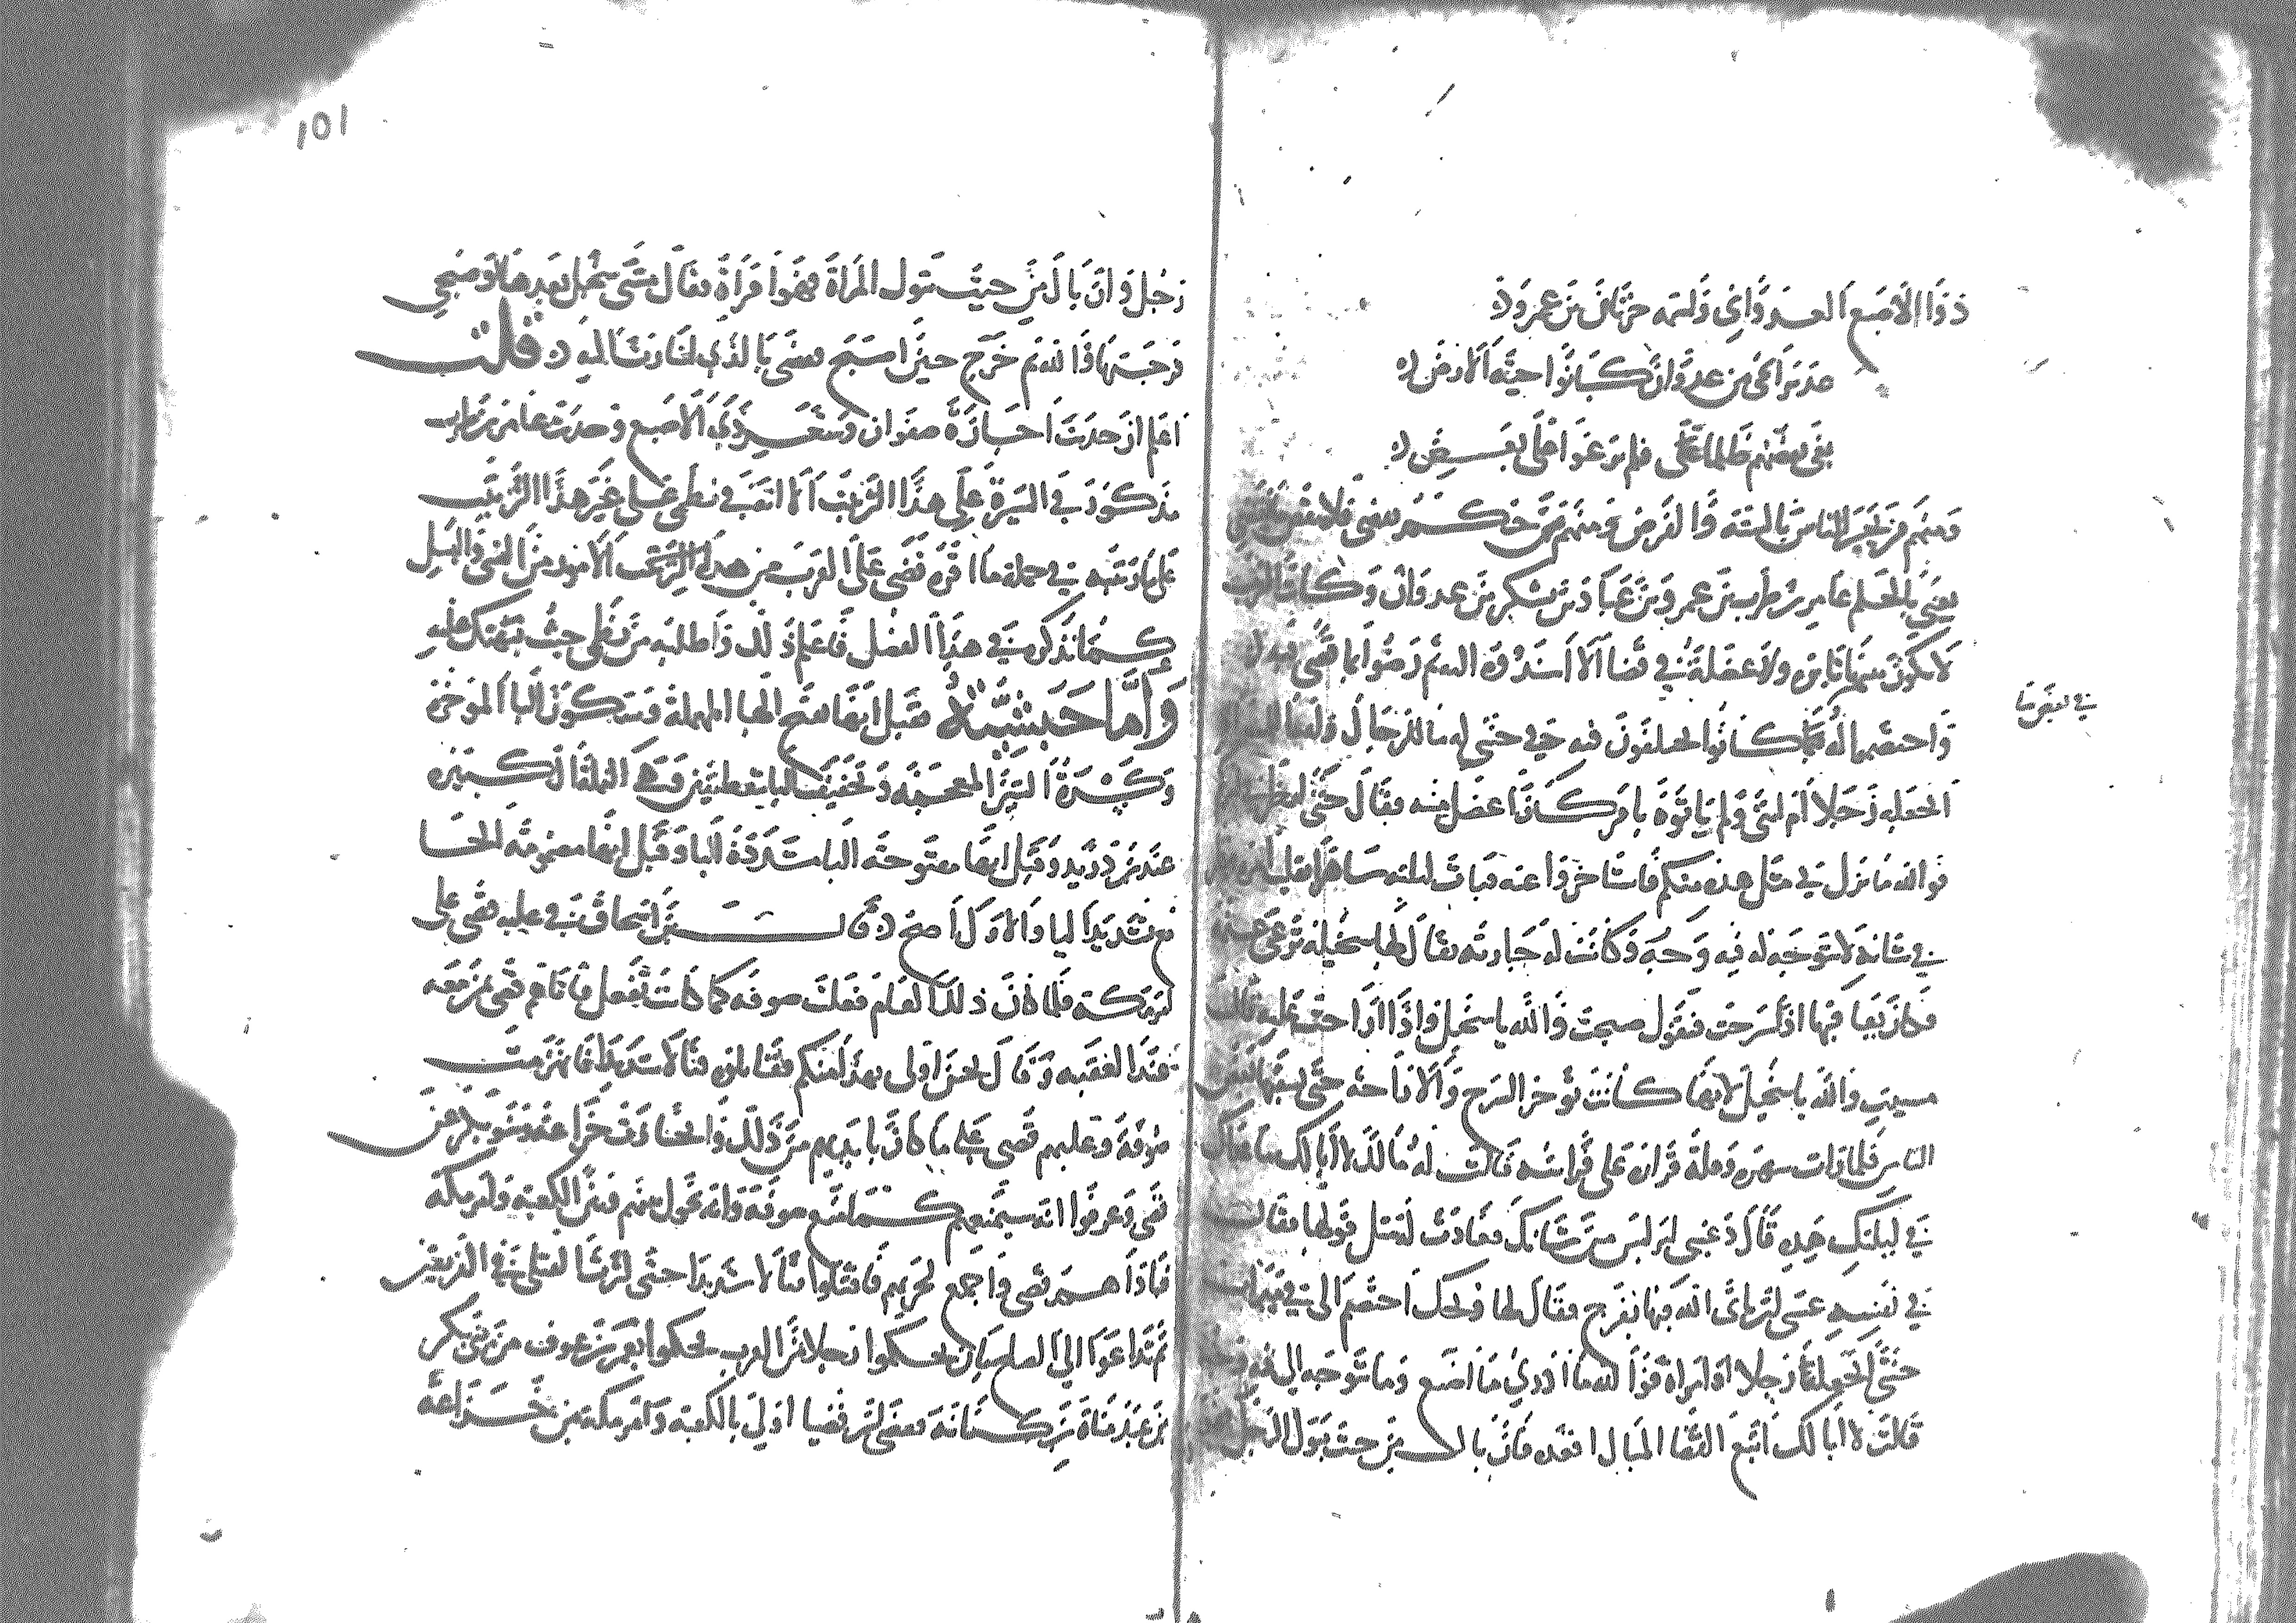 ذو الاصبع العدواني واسمه حرثان بن عمرو
عذير الحي من عدوان كانوا حية الارض
بغى بعضهم ظلما على فلم يرعوا على بعض
ومنهم من يجيز الناس بالسنة والفرض ومنهم حكم يقضي فلا ينقض ما يقضي
يعني بالحكم عامر بن ظرب بن عمرو بن عباد بن يشكر بن عدوان وكانت العرب
لا يكون بينها نايرة ولا عضلة في قضا الا اسندوه اليه ثم رضوا بما قضى فيه
فاختصم اليه في بعض ما كانوا يختلفون فيه في خنثى له ما للرجال وله ما للمراة
اتجعله رجلا ام انثى ولم ياتوه بامر كان اعضل منه فقال حتى انظر في امركم
فوالله ما نزل بي مثل هذه منكم فاستاخروا عنه فبات ليلته ساهرا يقلب امره
في شانه لا يتوجه له فيه وجه وكانت له جارية يقال لها سخيلة ترعى عليه
فكان يعاتبها اذا سرحت فيقول صبحت والله يا سخيل واذا اراحت عليه قال
مسيت والله يا سخيل لانها كانت توخر السرح والاراحة حتى يسبقها بعض
الناس فلما رات سهره وقلة قراره على فراشه قالت له مالك لا ابا لك ما عراك
في ليلتك هذه قال دعيني امر ليس من شانك فعادت لمثل قولها فقال
في نفسه عسى ان تاتي الله منها بفرج فقال لها ويحك اختصم الي في ميراث
خنثى اجعله رجلا او امراة فوالله ما ادري ما اصنع وما يتوجه لي فيه وجه
قالت لا ابا لك اتبع القضا المبال اقعده فان بال من حيث يبول الرجل فهو
في بعض ما
١٥١
رجل وان بال من حيث تبول المراة فهو امراة فقال مسي سخيل بعدها او صبحي
فرجتها والله ثم خرج حين اصبح فقضى بالذي اشارت اليه قلت
اعلم ان حديث اجازة صفوان وشعر ذي الاصبع وحديث عامر بن ظرب
مذكور في السيرة على هذا الترتيب الا اتعب في نظمي على غير هذا الترتيب
على ما رتبه في جملة ما اقره قصي على العرب من هذه الامور من النسي والنيل
كما تذكر في هذا الفصل فاعلم ذلك واطلبه من نظمي حيث نبهتك عليه
واما حبشية فقيل ايضا بفتح الحا المهملة وسكون البا الموحدة
وكسرة الشين المعجمة وتخفيف اليا بنقطتين وهي النملة الكبيرة
عند بن دريد وقيل ايضا مفتوحة البا مشددة اليا وقيل ايضا مضمومة الحا
مع تشديد اليا والاول اصح قال بن اسحاق في غلبه قصي على
امر مكة فلما كان ذلك العام فعلت صوفة كما كانت تفعل فاتاهم قصي بمن معه
عند العقبة وقال لنحن اولى بهذا منكم فقاتلوه قتالا شديدا فانهزمت
صوفة وغلبهم قصي على ما كان بايديهم من ذلك وانحازت خزاعة وبنو بكر عن
قصي وعرفوا انه سيمنعهم كما منع صوفة وانه يحول بينهم وبين الكعبة وامر مكة
فباداهم قصي واجمع لحربهم فاقتتلوا قتالا شديدا حتى كثرت القتلى في الفريقين
ثم تداعوا الى الصلح بان يحكموا رجلا من العرب فحكموا يعمر بن عوف من بني بكر
بن عبد مناة بن كنانة فقضى بان قصيا اولى بالكعبة وامر مكة من خزاعة